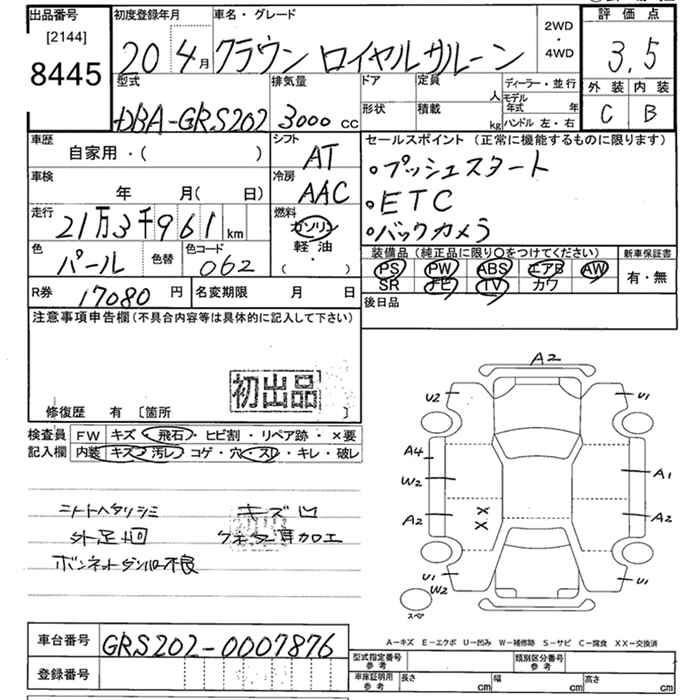 出品番号 初度登録年月 車名・グレード 2WD・4WD 評価点
[2144]
8445 20 4月 クラウン ロイヤルサルーン 3.5
型式 排気量 ドア 定員 人 ディーラー・並行 外装 内装
DBA-GRS202 3000cc 形状 積載 kg モデル年式 年 ハンドル 左・右 C B
車歴 シフト セールスポイント (正常に機能するものに限ります)
自家用・( ) AT ・プッシュスタート
車検 冷房
年 月( 日) AAC ・ETC
走行 燃料
21万3千961km ガソリン ・バックカメラ
色 色替 色コード 軽油 装備品 (純正品に限り○をつけてください) 新車保証書
パール 062 (・) PS PW ABS エアB AW 有・無
R券 17080円 名変期限 月 日 SR FE TV カワ
注意事項申告欄(不具合内容等は具体的に記入して下さい) 後日品
初出品
修復歴 有 [箇所 ]
検査員 FW キズ・飛石・ヒビ割・リペア跡・×要
記入欄 内装 キズ・汚レ・コゲ・穴・スレ・キレ・破レ
シートヘタリシミ キズ凹
外足回 加工
ボンネットダンパー不良
A2
U2 U1
A4 W2 A1
A2 XX A2
U1 W2 U1
スペア
A-キズ E-エクボ U-凹み W-補修跡 S-サビ C-腐食 XX-交換済
車台番号 GRS202-0007876
登録番号
型式指定番号 参考 類別区分番号 参考
車庫証明用 参考 長さ cm 幅 cm 高さ cm